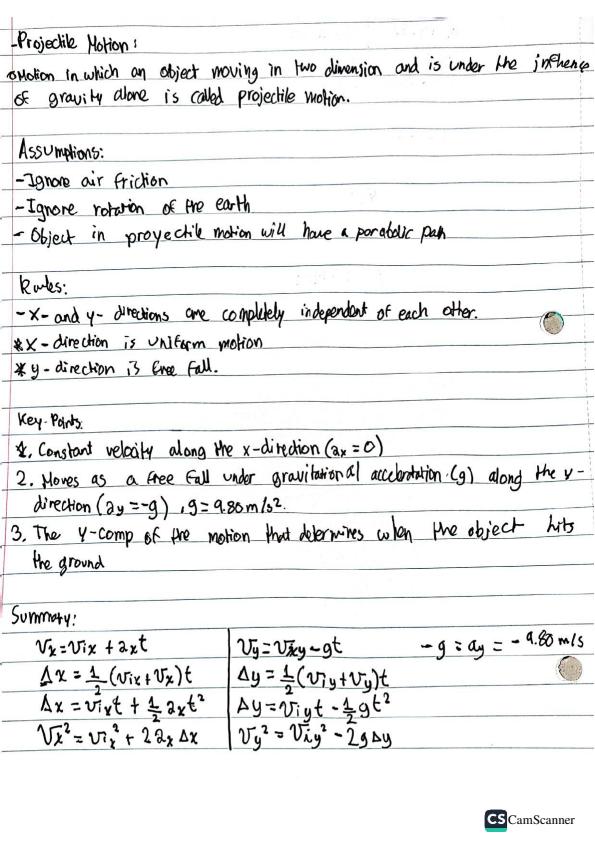 -Projectile Motion:
oMotion in which an object moving in two dimension and is under the influence
of gravity alone is called projectile motion.
Assumptions:
-Ignore air friction
-Ignore rotation of the earth
- Object in proyectile motion will have a parabolic path
Rules:
-x- and y- directions are completely independent of each other.
*x-direction is uniform motion
*y-direction is free fall.
Key-Points:
1. Constant velocity along the x-direction (ax=0)
2. Moves as a free fall under gravitational acceleration (g) along the y-
direction (ay=-g), g=9.80m/s².
3. The y-comp of the motion that determines when the object hits
the ground
Summary:
Vx=Vix + axt
Vy=Viy-gt
-g = ay = -9.80 m/s
Δx = 1/2 (Vix+Vx)t
Δy = 1/2 (Viy+Vy)t
Δx = Vixt + 1/2 axt²
Δy=Viyt - 1/2 gt²
Vx² = Vix² + 2ax Δx
Vy² = Viy² - 2gΔy
CS CamScanner